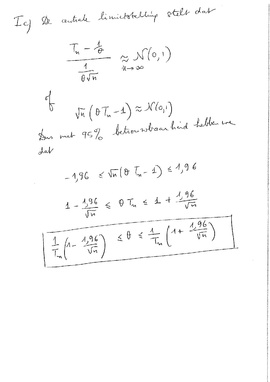 I c) De centrale limietstelling stelt dat
(T_n - 1/θ) / (1/(θ√n)) ≈ N(0,1)
n→∞
of
√n (θ T_n - 1) ≈ N(0,1)
Dus met 95% betrouwbaarheid hebben we
dat
-1,96 ≤ √n (θ T_n - 1) ≤ 1,96
1 - 1,96/√n ≤ θ T_n ≤ 1 + 1,96/√n
1/T_n (1 - 1,96/√n) ≤ θ ≤ 1/T_n (1 + 1,96/√n)